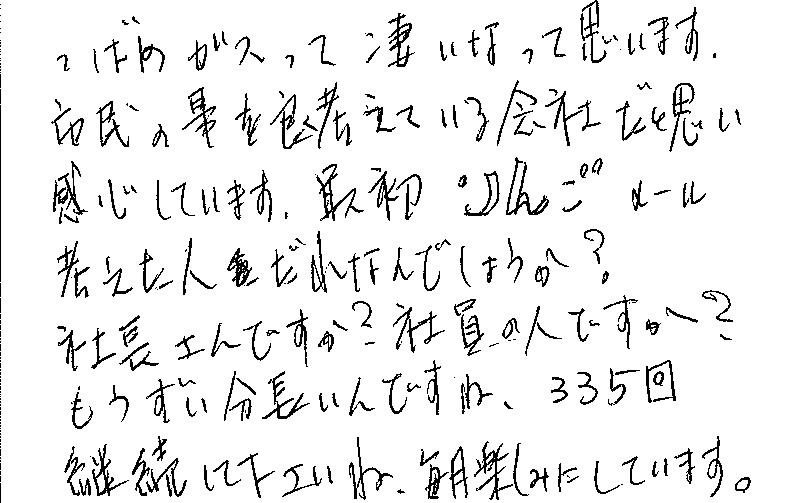 つばめガスって凄いなって思います.
市民の事を良く考えている会社だと思い
感心しています. 最初 りんごメール
考えた人はだれなんでしょうか?
社長さんですか? 社員の人ですか?
もうずい分長いんですね、335回
継続して下さいね. 毎月楽しみにしています。